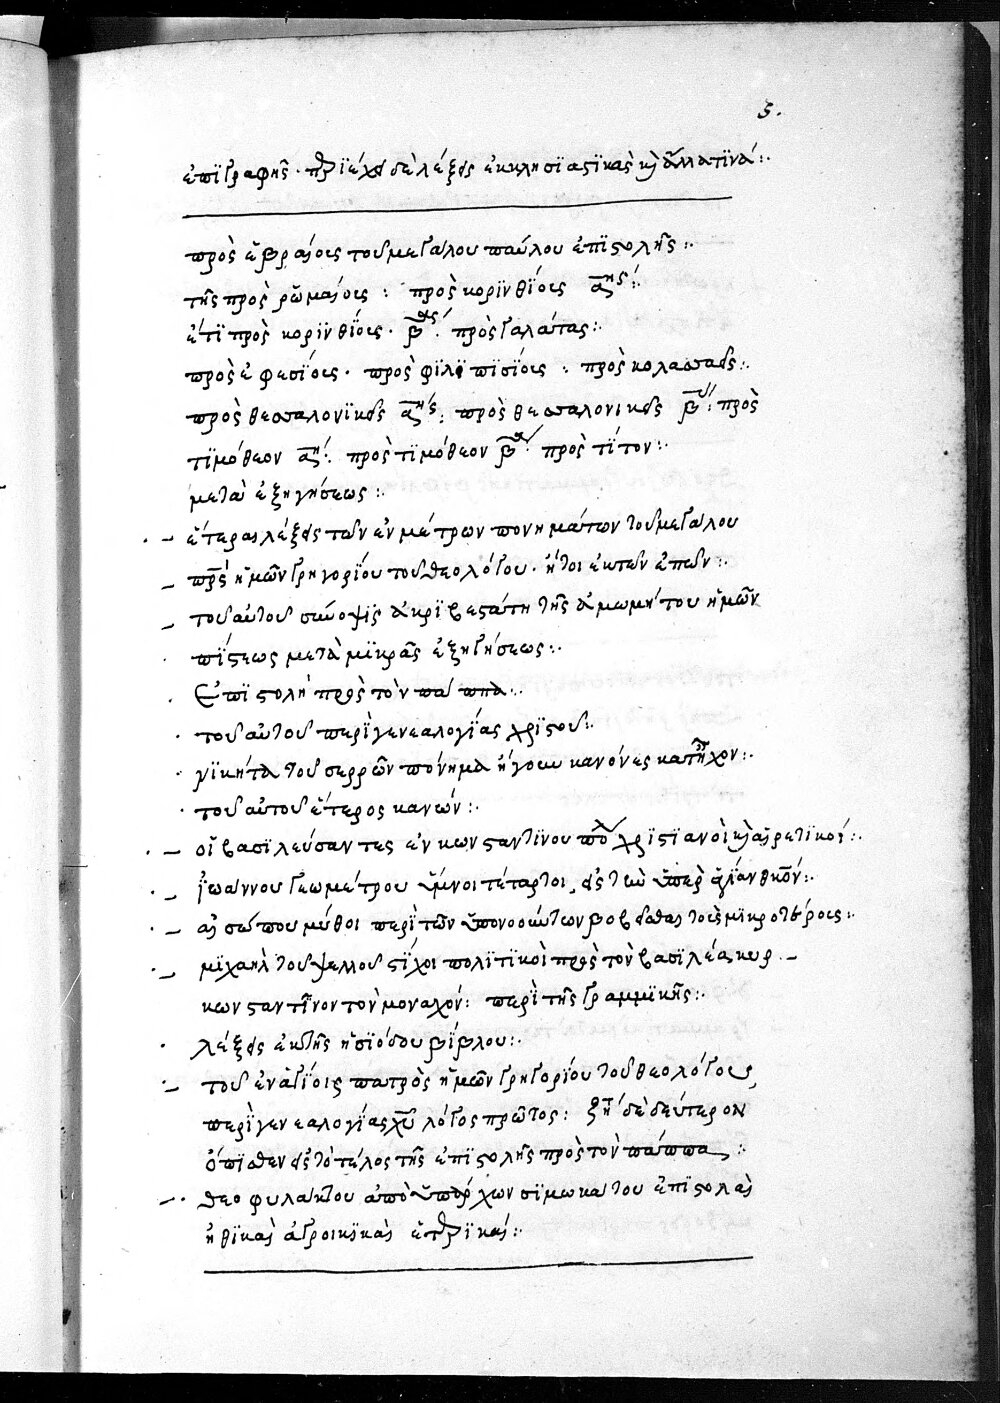 5.
ἐπϊγραφῆς· πϊέχει δὲ λέξεις ἐκκλησϊαςϊκὰς κὶ ἄλλα τϊνά:·
πρὸς ἑβραίοις τοῦ μεγάλου παύλου ἐπϊςολῆς:·
τῆς πρὸς ῥωμαίοις: πρὸς κορϊνθϊοις α^ης:·
ἔτϊ πρὸς κορϊνθϊοις· β^ας: πρὸς γαλάτας:·
πρὸς ἐφεσίοις· πρὸς φϊλϊπϊσϊοις: πρὸς κολασσαεῖς:·
πρὸς θεσσαλονϊκεῖς α^ης: πρὸς θεσσαλονικεῖς β: πρὸς
τϊμόθεον α^η· πρὸς τϊμόθεον β^α· πρὸς τϊτον:·
μετὰ ἐξηγήσεως:·
ἕτεραι λέξεις τῶν ἐν μέτρων πονημάτων τοῦ μεγάλου
πρς ἡμῶν γρηγορίου τοῦ θεολόγου· ἤτοι ἐκ τῶν ἐπῶν:·
τοῦ αὐτοῦ σύνοψϊς ἀκρϊβεςάτη τῆς ἀμωμήτου ἡμῶν
πίςεως μετὰ μϊκρᾶς ἐξηγήσεως:·
Ἐπϊςολὴ πρὸς τὸν παππα:·
τοῦ αὐτοῦ περὶ γενεαλογϊας χρϊςοῦ:·
νϊκήτα τοῦ σερρῶν πόνημα ἤγουν κανόνες κατήχον:·
τοῦ αὐτοῦ ἕτερος κανών:·
οἱ βασϊλεύσαντες ἐν κωνςαντϊνου πολ χρϊςϊανοὶ κὶ αἱρετϊκοί:·
ϊωάννου γεωμέτρου ὕμνοι τέταρτοι, εἰς τὴν ὑπερ ἁγϊαν θκον:·
αἰσώπου μύθοι περὶ τῶν ὑπονοούντων βοβεῖσθαι τοῖς μϊκροτέροις:·
μϊχαὴλ τοῦ ψελλοῦ ςϊχοι πολϊτϊκοὶ πρὸς τὸν βασϊλέα κυρ
κωνςαντῖνον τὸν μοναχόν: περὶ τῆς γραμμϊκῆς:·
λέξεις ἐκ τῆς ἡσϊόδου βϊβλου:·
τοῦ ἐν ἁγϊοις πατρὸς ἡμῶν γρηγορίου τοῦ θεολόγου,
περὶ γενεαλογϊας χυ λόγος πρῶτος: ζητ δὲ δεύτερον
ὄπϊθεν εἰς τὸ τέλος τῆς ἐπϊςολῆς πρὸς τὸν πάππα:·
θεοφυλάκτου ἀπὸ ὑπάρχων σϊμωκάτου ἐπϊςολαὶ
ἠθϊκαὶ ἀγροικϊκαὶ ἑταιρϊκαί:·